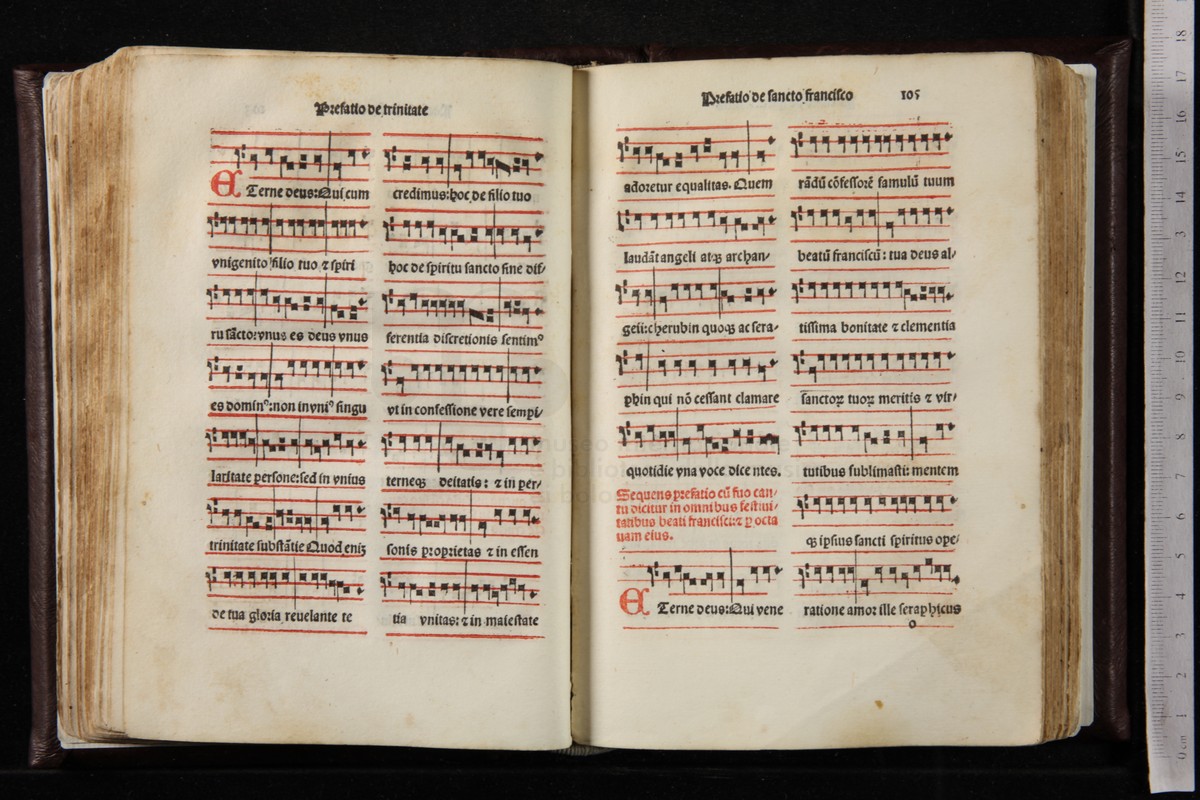 Prefatio de trinitate
ETerne deus: Qui cum
vnigenito filio tuo ⁊ spiri
ru sãcto: vnus es deus vnus
es dominꝰ: non in vniꝰ singu
laritate persone: sed in vnius
trinitate substãtie Quod eniꝫ
de tua gloria reuelante te
credimus: hoc de filio tuo
hoc de spiritu sancto sine dif-
ferentia discretionis sentimꝰ
vt in confessione vere sempi-
terneqꝫ deitatis: ⁊ in per-
sonis proprietas ⁊ in essen
tia vnitas: ⁊ in maiestate
Prefatio de sancto francisco 105
adoretur equalitas. Quem
laudãt angeli atqꝫ archan-
geli: cherubin quoqꝫ ac sera-
phin qui nõ cessant clamare
quotidie vna voce dice ntes.
Sequens prefatio cũ suo can-
tu dicitur in omnibus festiui-
tatibus beati francisci: ⁊ p octa
uam eius.
ETerne deus: Qui vene
rãdũ cõfessorẽ famulũ tuum
beatũ franciscũ: tua deus al-
tissima bonitate ⁊ clementia
sanctoꝝ tuoꝝ meritis ⁊ vir-
tutibus sublimasti: mentem
qꝫ ipsius sancti spiritus ope-
ratione amor ille seraphicus
o